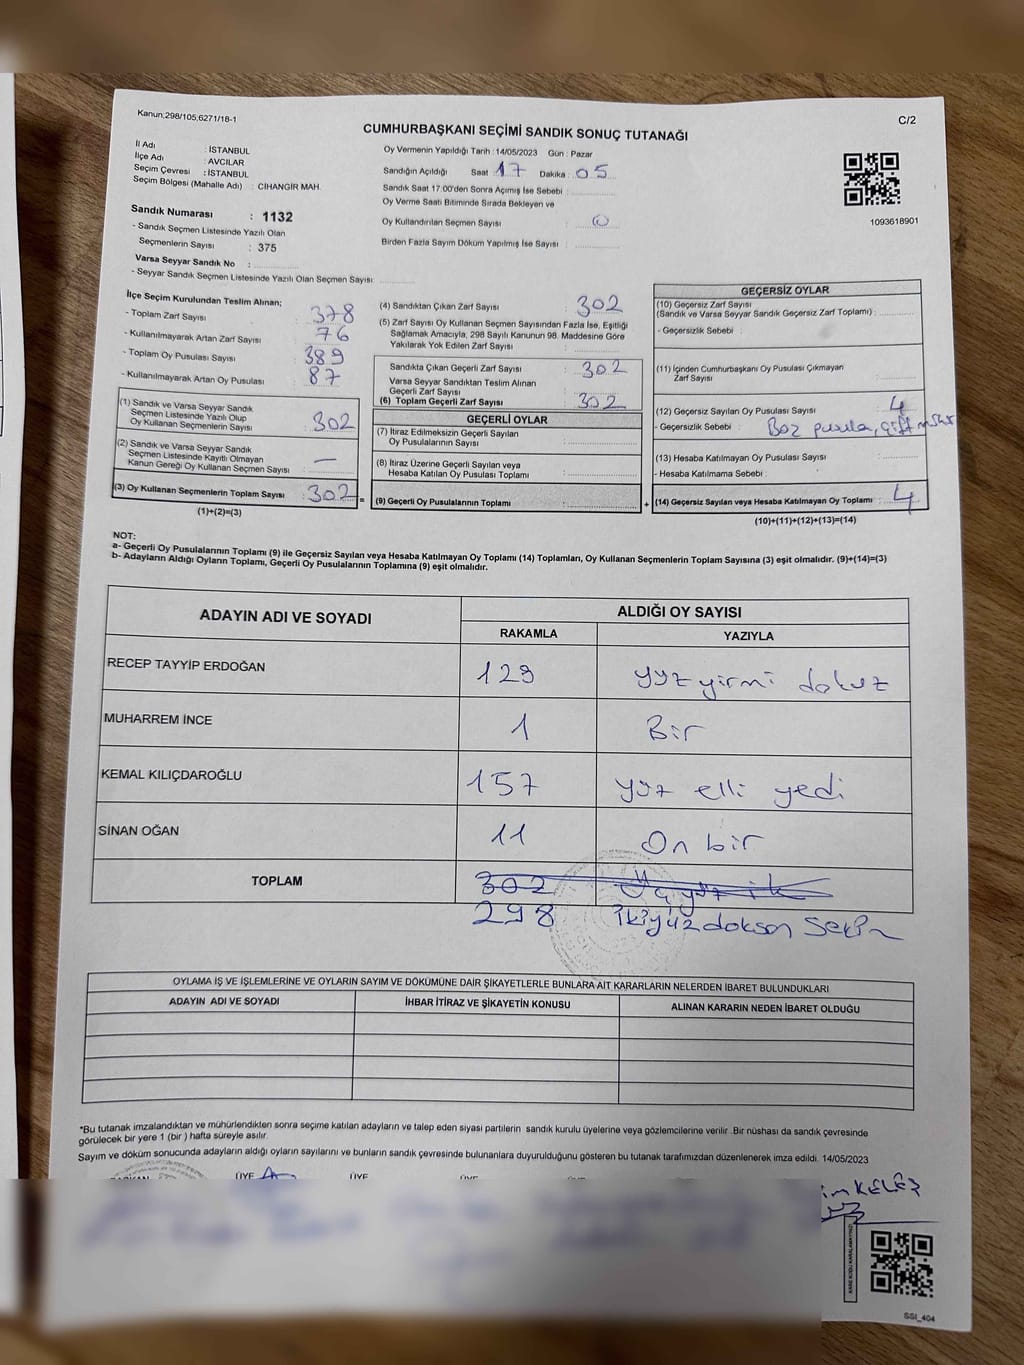 Kanun;298/105;6271/18-1
C/2
CUMHURBAŞKANI SEÇİMİ SANDIK SONUÇ TUTANAĞI
İl Adı : İSTANBUL
İlçe Adı : AVCILAR
Seçim Çevresi : İSTANBUL
Seçim Bölgesi (Mahalle Adı) : CİHANGİR MAH.
Sandık Numarası : 1132
- Sandık Seçmen Listesinde Yazılı Olan
Seçmenlerin Sayısı : 375
Varsa Seyyar Sandık No :
- Seyyar Sandık Seçmen Listesinde Yazılı Olan Seçmen Sayısı:
Oy Vermenin Yapıldığı Tarih : 14/05/2023 Gün : Pazar
Sandığın Açıldığı Saat 17 Dakika : 05
Sandık Saat 17:00'den Sonra Açımış İse Sebebi :
Oy Verme Saati Bitiminde Sırada Bekleyen ve
Oy Kullandırılan Seçmen Sayısı : 0
Birden Fazla Sayım Döküm Yapılmış İse Sayısı :
1093618901
İlçe Seçim Kurulundan Teslim Alınan;
- Toplam Zarf Sayısı : 378
- Kullanılmayarak Artan Zarf Sayısı : 76
- Toplam Oy Pusulası Sayısı : 389
- Kullanılmayarak Artan Oy Pusulası : 87
(1) Sandık ve Varsa Seyyar Sandık
Seçmen Listesinde Yazılı Olup
Oy Kullanan Seçmenlerin Sayısı : 302
(2) Sandık ve Varsa Seyyar Sandık
Seçmen Listesinde Kayıtlı Olmayan
Kanun Gereği Oy Kullanan Seçmen Sayısı : —
(3) Oy Kullanan Seçmenlerin Toplam Sayısı : 302 =
(1)+(2)=(3)
(4) Sandıktan Çıkan Zarf Sayısı : 302
(5) Zarf Sayısı Oy Kullanan Seçmen Sayısından Fazla İse, Eşitliği
Sağlamak Amacıyla, 298 Sayılı Kanunun 98. Maddesine Göre
Yakılarak Yok Edilen Zarf Sayısı :
Sandıkta Çıkan Geçerli Zarf Sayısı : 302
Varsa Seyyar Sandıktan Teslim Alınan
Geçerli Zarf Sayısı :
(6) Toplam Geçerli Zarf Sayısı : 302
GEÇERLİ OYLAR
(7) İtiraz Edilmeksizin Geçerli Sayılan
Oy Pusulalarının Sayısı :
(8) İtiraz Üzerine Geçerli Sayılan veya
Hesaba Katılan Oy Pusulası Toplamı :
(9) Geçerli Oy Pusulalarının Toplamı : +
GEÇERSİZ OYLAR
(10) Geçersiz Zarf Sayısı
(Sandık ve Varsa Seyyar Sandık Geçersiz Zarf Toplamı) :
- Geçersizlik Sebebi :
(11) İçinden Cumhurbaşkanı Oy Pusulası Çıkmayan
Zarf Sayısı :
(12) Geçersiz Sayılan Oy Pusulası Sayısı : 4
- Geçersizlik Sebebi : Boz pusula, çift mühür
(13) Hesaba Katılmayan Oy Pusulası Sayısı :
- Hesaba Katılmama Sebebi :
(14) Geçersiz Sayılan veya Hesaba Katılmayan Oy Toplamı : 4
(10)+(11)+(12)+(13)=(14)
NOT:
a- Geçerli Oy Pusulalarının Toplamı (9) ile Geçersiz Sayılan veya Hesaba Katılmayan Oy Toplamı (14) Toplamları, Oy Kullanan Seçmenlerin Toplam Sayısına (3) eşit olmalıdır. (9)+(14)=(3)
b- Adayların Aldığı Oyların Toplamı, Geçerli Oy Pusulalarının Toplamına (9) eşit olmalıdır.
ADAYIN ADI VE SOYADI ALDIĞI OY SAYISI
RAKAMLA YAZIYLA
RECEP TAYYİP ERDOĞAN 129 yüz yirmi dokuz
MUHARREM İNCE 1 Bir
KEMAL KILIÇDAROĞLU 157 yüz elli yedi
SİNAN OĞAN 11 On bir
TOPLAM 302 Üçyüz iki
298 ikiyüzdoksan sekiz
OYLAMA İŞ VE İŞLEMLERİNE VE OYLARIN SAYIM VE DÖKÜMÜNE DAİR ŞİKAYETLERLE BUNLARA AİT KARARLARIN NELERDEN İBARET BULUNDUKLARI
ADAYIN ADI VE SOYADI İHBAR İTİRAZ VE ŞİKAYETİN KONUSU ALINAN KARARIN NEDEN İBARET OLDUĞU
*Bu tutanak imzalandıktan ve mühürlendikten sonra seçime katılan adayların ve talep eden siyasi partilerin sandık kurulu üyelerine veya gözlemcilerine verilir .Bir nüshası da sandık çevresinde
görülecek bir yere 1 (bir ) hafta süreyle asılır.
Sayım ve döküm sonucunda adayların aldığı oyların sayılarını ve bunların sandık çevresinde bulunanlara duyurulduğunu gösteren bu tutanak tarafımızdan düzenlenerek imza edildi. 14/05/2023
ÜYE ÜYE
KELEŞ
KARE KODU KARALAMAYINIZ!
SSI_404